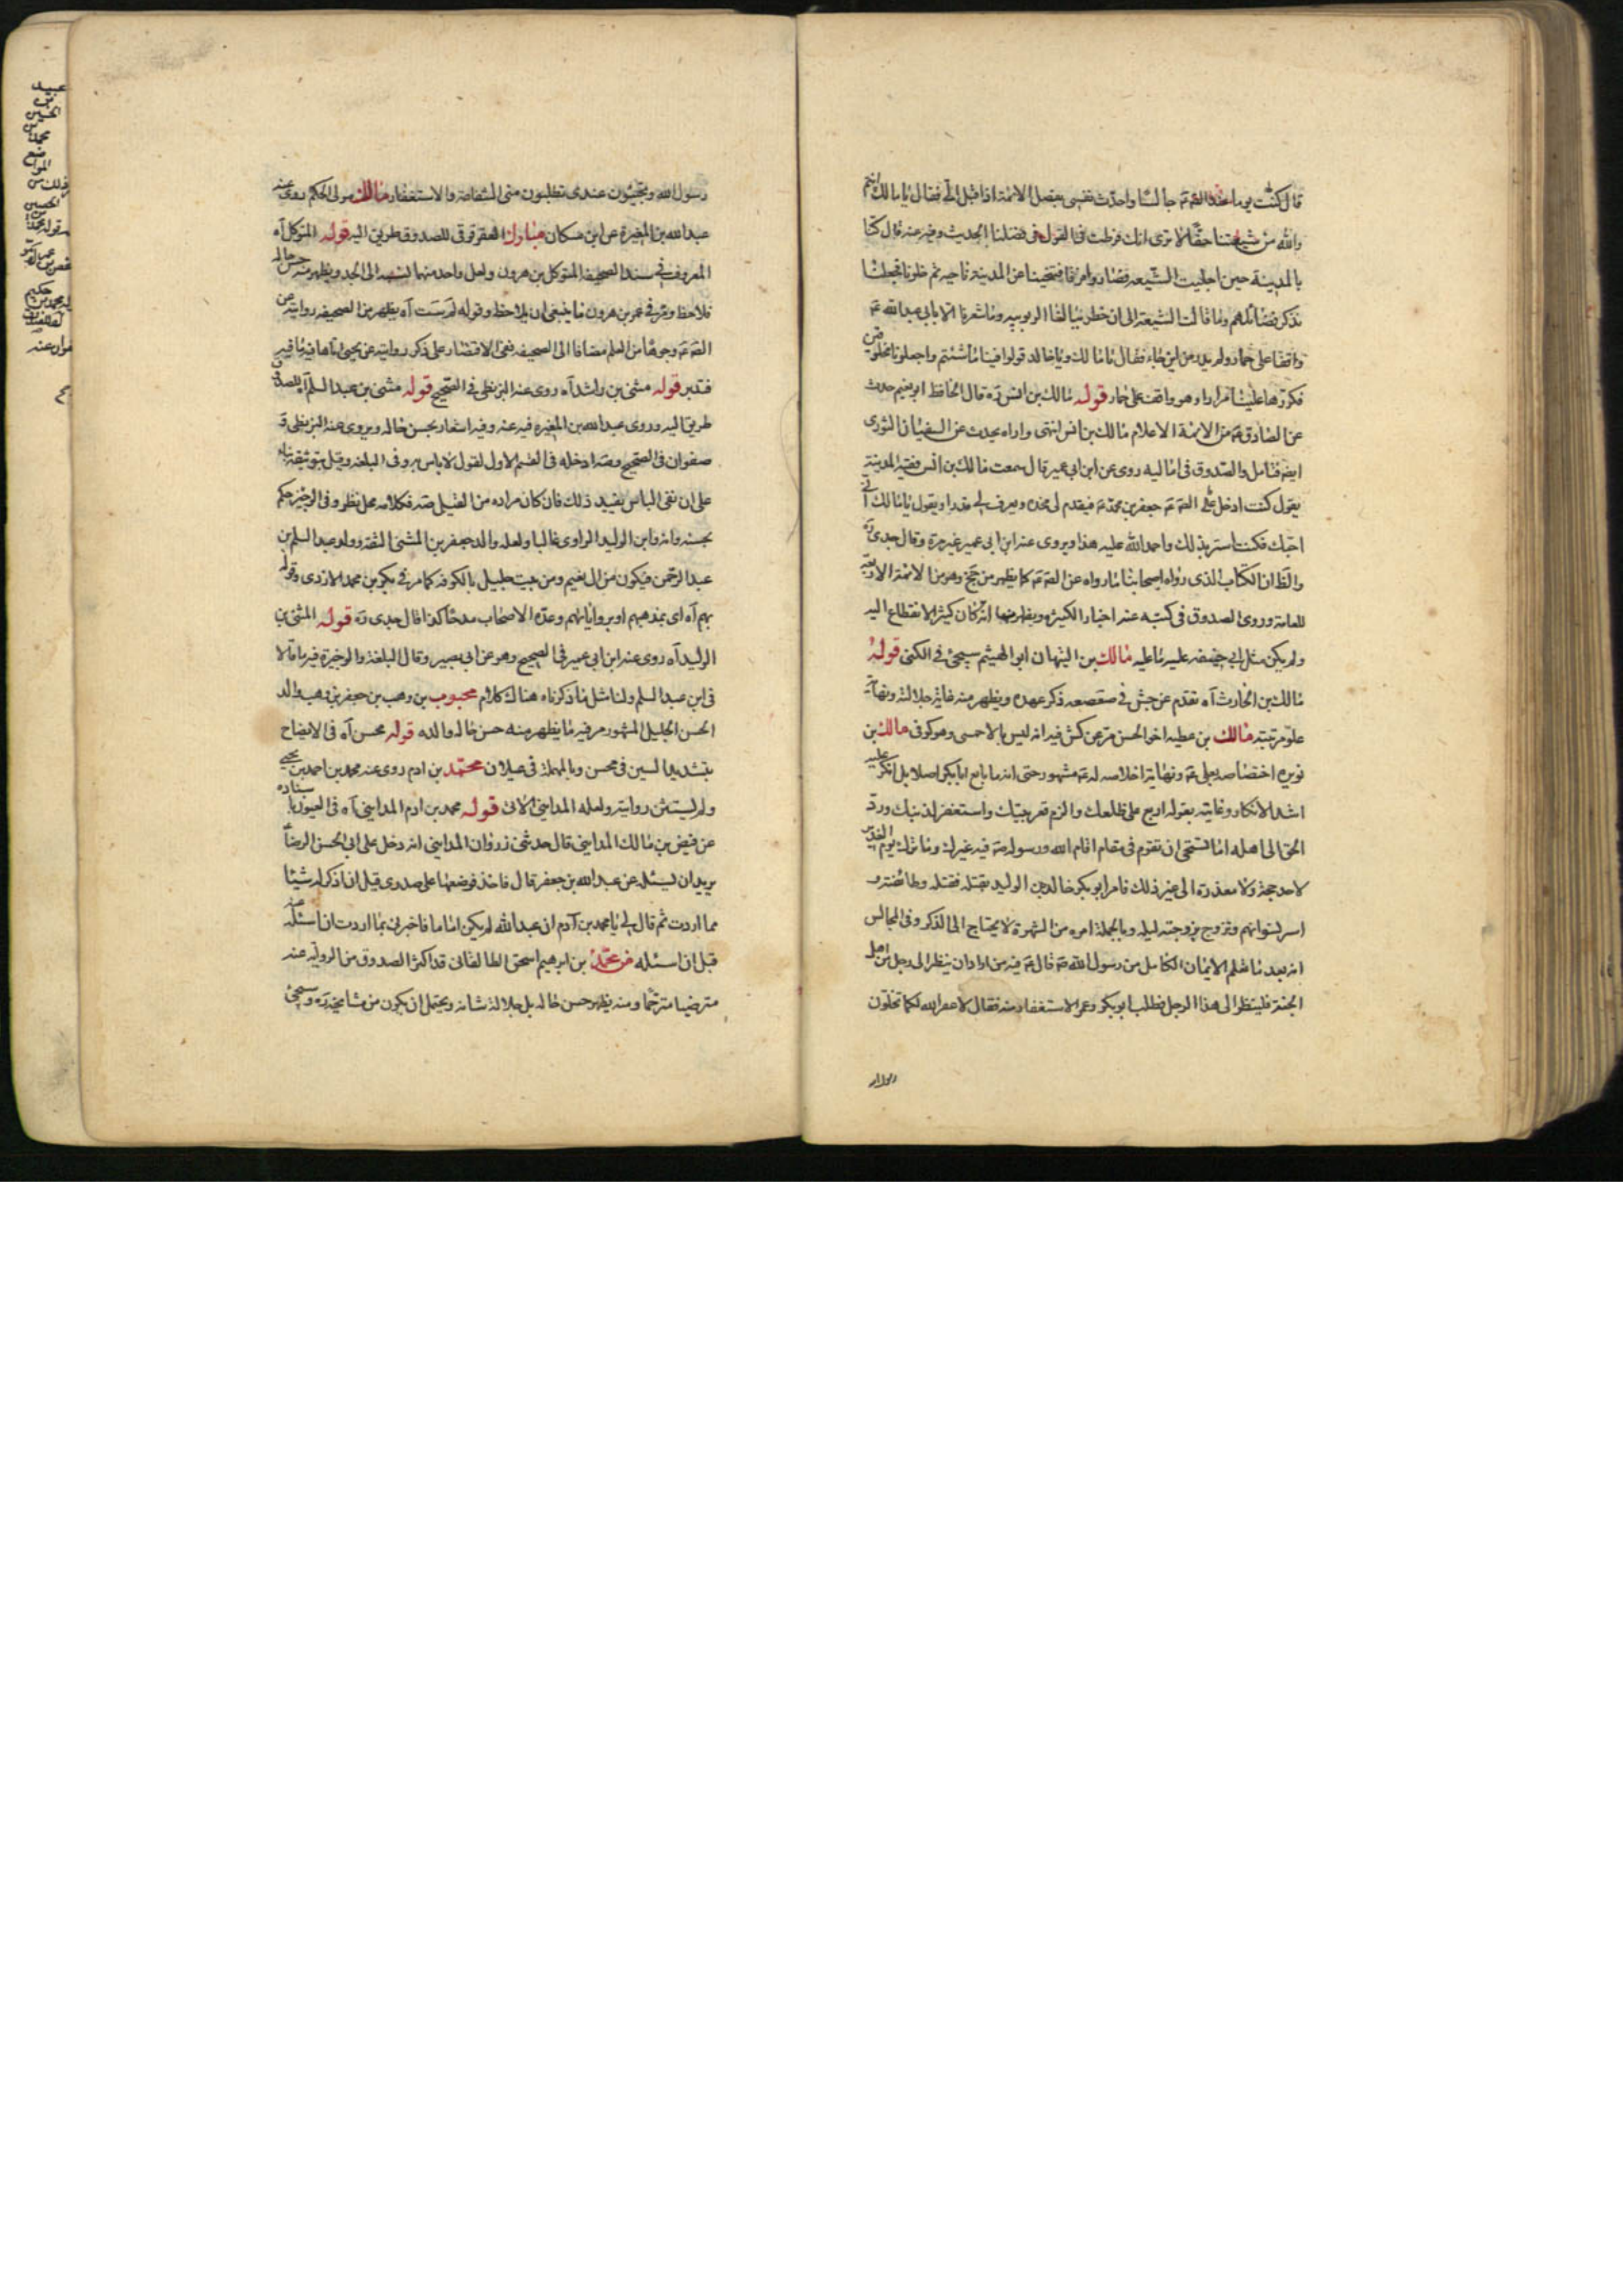 قال كنت يوما عند الص ع جالسا واحدّث نفسى بفضل الائمة اذ اقبل الىّ فقال يا مالك انتم
والله من شيعتنا حقّا لا ترى انك فرطت فى القول فى فضلنا الحديث وفيه عنه قال كنّا
بالمدينة حين اجليت الشيعه فصاروا فرقا فتنحينا عن المدينة ناحيه ثم خلونا فجعلنا
نذكر فضائلهم وما قالت الشيعة الى ان خطر ببالنا الربوبيه وما شعرنا الا بابى عبد الله ع
واقفا على حمار ولم ندر من اين جاء فقال يا مالك ويا خالد قولوا فينا ما شئتم واجعلونا مخلوقين
فكررها علينا مرارا وهو واقف على حمار قوله مالك بن انس ره قال الحافظ ابو نعيم حدث
عن الصادق ع من الائمة الاعلام مالك بن انس انتهى واراه يحدث عن السفيان الثورى
ايضا فتامل والصدوق فى اماليه روى عن ابن ابى عمير قال سمعت مالك بن انس فقيه المدينة
يقول كنت ادخل على الص ع جعفر بن محمد ع فيقدم لى مخده ويعرف لى قدرا ويقول يا مالك انى
احبك فكنت اسر بذلك واحمد الله عليه هذا ويروى عنه ابن ابى عمير غير مرة وقال جدى ره
والظ ان الكتاب الذى رواه اصحابنا ما رواه عن الص ع كما يظهر من جخ وهو من الائمة الاربعة
للعامة وروى الصدوق فى كتبه عنه اخبار الكثيره ويظهر منها انه كان كثير الانقطاع اليه
ولم يكن مثل ابى حنيفه عليه ما عليه مالك بن التيهان ابو الهيثم سيجئ فى الكنى قوله
مالك بن الحارث آه تقدم عن جش فى صعصعه ذكر عهده ويظهر منه غاية جلالته ونهاية
علو مرتبته مالك بن عطيه اخو الحسن مر عن كش فيه انه ليس بالاحمسى وهو كوفى مالك بن
نويره اختصاصه بعلى ع ونهاية اخلاصه له ع مشهور حتى انه ما بايع ابا بكر اصلا بل انكر عليه
اشد الانكار وغايته بقوله اربع على ظلعك والزم قعر بيتك واستغفر لذنبك ورد
الحق الى اهله اما تستحى ان تقوم فى مقام اقام الله ورسوله ص فيه غيرك وما ترك يوم الغدير
لاحد حجة ولا معذرة الى غير ذلك فامر ابو بكر خالد بن الوليد بقتله فقتله وطائفته و
اسر نسوانهم وتزوج بزوجته ليله وبالجملة امره من الشهرة لا يحتاج الى الذكر وفى المجالس
انه بعد ما تعلم الايمان الكامل من رسول الله ص قال ع فيه من اراد ان ينظر الى رجل من اهل
الجنة فلينظر الى هذا الرجل فطلب ابو بكر وعمر الاستغفار منه فقال لا غفر الله لكما تخلون
رسول الله وتجيئون عندى تطلبون منى الشفاعة والاستغفار مالك مولى الحكم روى عنه
عبد الله بن المغيرة عن ابن مسكان مبارك العقرقوقى للصدوق طريق اليه قوله المتوكل آه
المعروف فى سند الصحيفة المتوكل بن هرون ولعل واحد منهما نسبه الى الجد ويظهر منه حسن حاله
فلاحظ ومر فى عمر بن هرون ما ينبغى ان يلاحظ وقوله لم ست آه يظهر من الصحيفه روايته عن
الص ع وجوها من العلم مضافا الى الصحيفه ففى الاقتصار على ذكر روايته عن يحيى اياها فيه ما فيه
فتدبر قوله مثنى بن راشد آه روى عنه البزنطى فى الصحيح قوله مثنى بن عبد السلم آه للصدوق
طريق اليه وروى عبد الله بن المغيره فيه عنه وفيه اشعار بحسن حاله ويروى عنه البزنطى و
صفوان فى الصحيح وصه ادخله فى القسم الاول لقول لا باس به وفى البلغة وقيل بتوثيقه بناء
على ان نفى الباس يفيد ذلك فان كان مراده من القيل صه فكلامه محل نظر وفى الوجيزه حكم
بحسنه وانه وابن الوليد الراوى غالبا ولعله والد جعفر بن المثنى الثقة وولد عبد السلم بن
عبد الرحمن فيكون من آل نعيم ومن بيت جليل بالكوفه كما مر فى بكر بن محمد الازدى وقوله
بهم آه اى بمذهبهم او برواياتهم وعدّه الاصحاب مدحا كذا قال جدى ره قوله المثنى بن
الوليد آه روى عنه ابن ابى عمير فى الصحيح وهو عن ابى بصير وقال البلغة والوجيزة فيه ما قالا
فى ابن عبد السلم ولنا مثل ما ذكرناه هناك كلام محبوب بن وهب بن جعفر بن وهب والد
الحسن الجليل المشهور مر فيه ما يظهر منه حسن حاله والده قوله محسن آه فى الايضاح
بتشديد السين فى محسن وبالمهملة فى عيلان محمد بن ادم روى عنه محمد بن احمد بن يحيى
ولم يستثن روايته ولعله المداينى الاتى قوله محمد بن ادم المداينى آه فى العيون باسناده
عن فيض بن مالك المداينى قال حدثنى زروان المداينى انه دخل على ابى الحسن الرضا ع
يريد ان يسئله عن عبد الله بن جعفر قال فاخذ فوضعها على صدرى قبل ان اذكر له شيئا
مما اردت ثم قال لى يا محمد بن آدم ان عبد الله لم يكن اماما فاخبرنى بما اردت ان اسئله عنه
قبل ان اسئله محمد بن ابرهيم اسحق الطالقانى قد اكثر الصدوق من الرواية عنه
مترضيا مترحّما ومنه يظهر حسن حاله بل جلالة شانه ويحتمل ان يكون من مشايخه ره وسيجئ